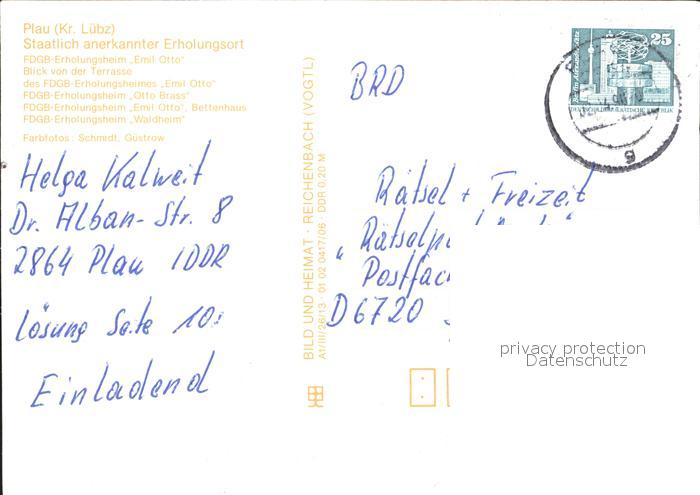 Plau (Kr. Lübz)
Staatlich anerkannter Erholungsort
FDGB-Erholungsheim „Emil Otto"
Blick von der Terrasse
des FDGB-Erholungsheimes „Emil Otto"
FDGB-Erholungsheim „Otto Brass"
FDGB-Erholungsheim „Emil Otto", Bettenhaus
FDGB-Erholungsheim „Waldheim"
Farbfotos: Schmidt, Güstrow
Helga Kalweit
Dr. Alban-Str. 8
2864 Plau / DDR
Lösung Seite 10:
Einladend
BILD UND HEIMAT · REICHENBACH (VOGTL)
A1/III/26/13 · 01 02 0417/06 · DDR 0,20 M
BRD
25
Rätsel + Freizeit
Postfac
D 6720
privacy protection
Datenschutz